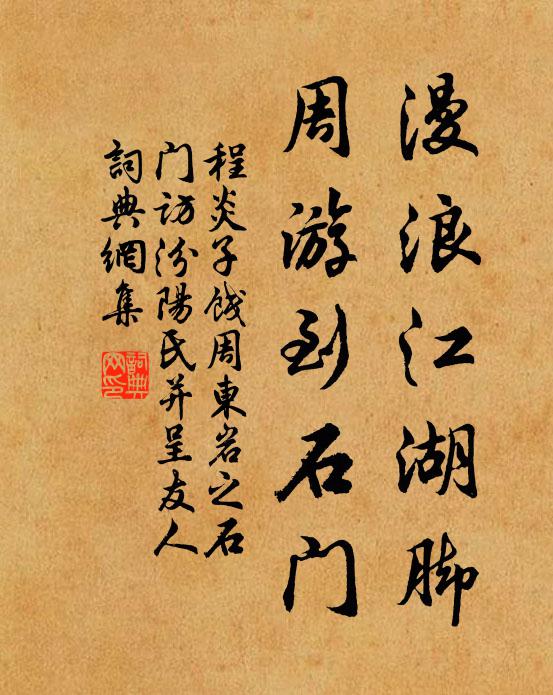 漫浪江湖脚
周游到石门
程炎子餞周東岩之石
门访汾陽氏并呈友人
詞典網集
詞典網印